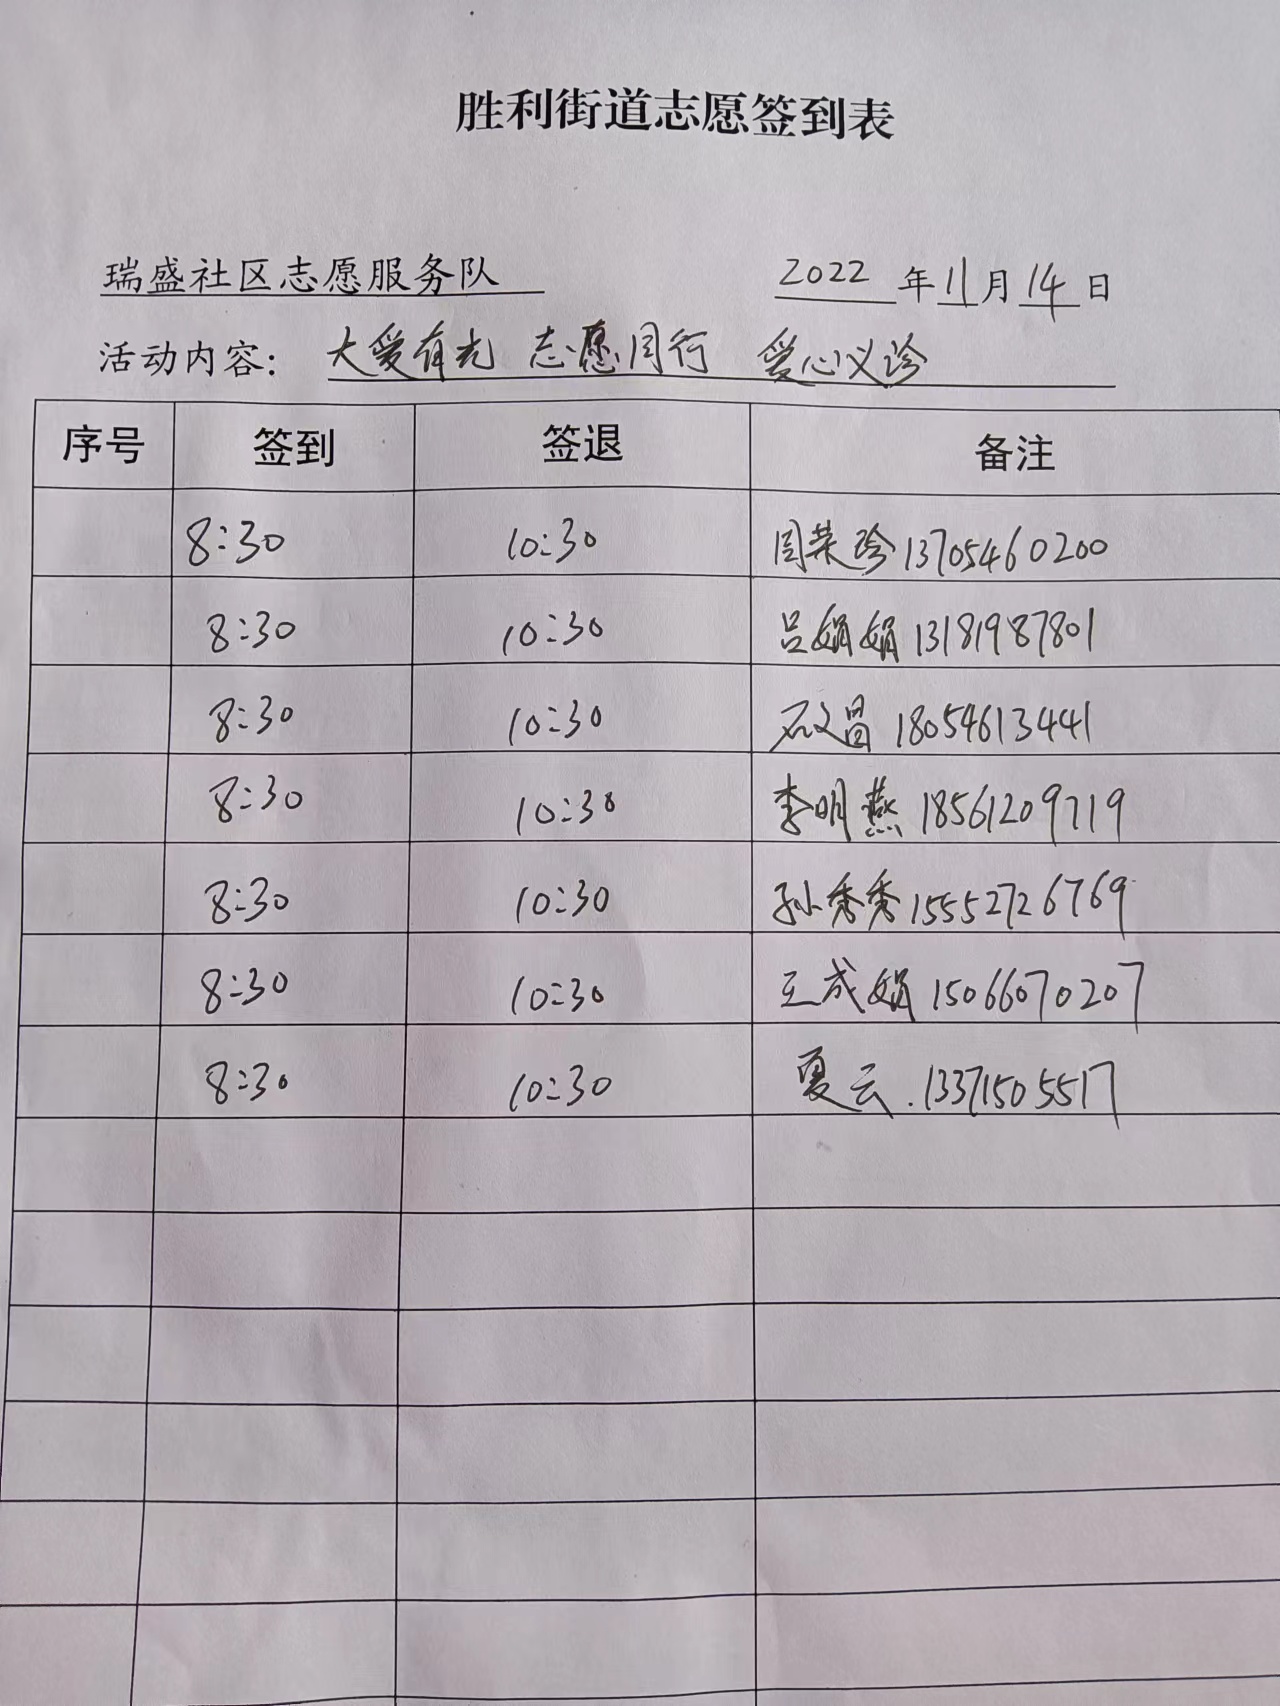 胜利街道志愿签到表
瑞盛社区志愿服务队 2022年11月14日
活动内容：大爱有光 志愿同行 爱心义诊
序号 签到 签退 备注
8:30 10:30 周荣珍 13705460200
8:30 10:30 吕娟娟 13181987801
8:30 10:30 石文昌 18054613441
8:30 10:30 李明燕 18561209719
8:30 10:30 孙秀秀 15552726769
8:30 10:30 王成娟 15066070207
8:30 10:30 夏云.13371505517